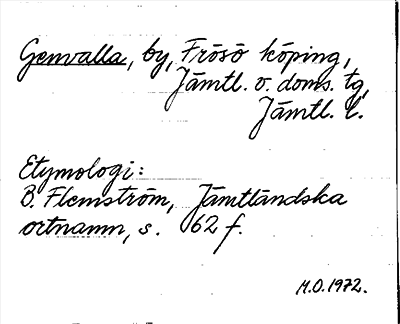 Genvalla, by, Frösö köping,
Jämtl. o. doms. tg,
Jämtl. l.
Etymologi:
B. Flemström, Jämtländska
ortnamn, s. 62 f.
M.O.1972.